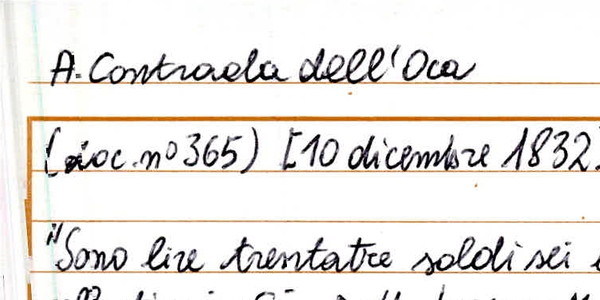 A. Contrada dell'Oca
(doc. nº 365) [10 dicembre 1832]
"Sono lire trentatre soldi sei